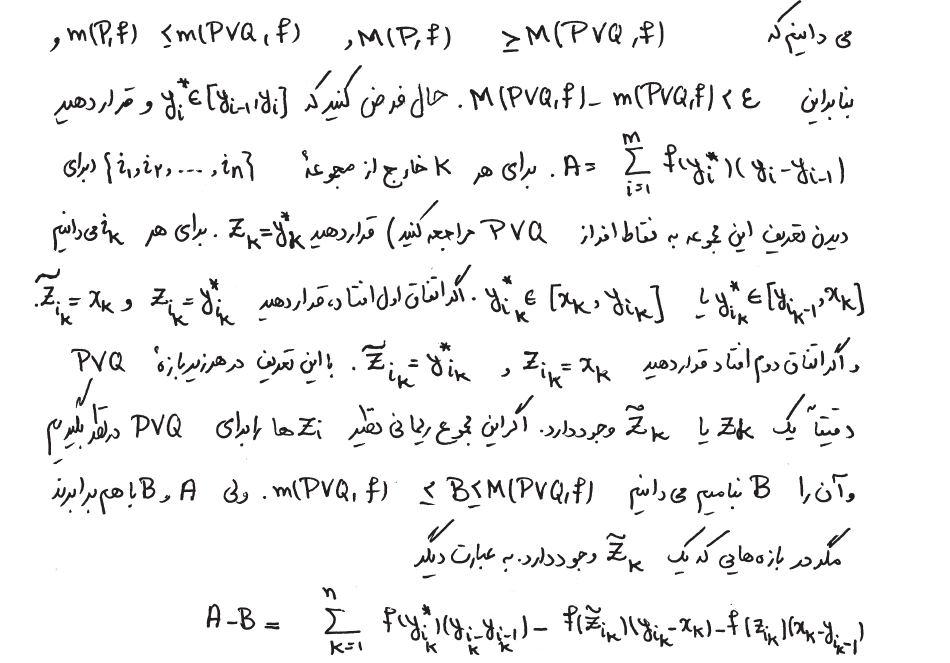 می دانیم که M(P,f) ≥ M(P∨Q,f) , m(P,f) ≤ m(P∨Q,f) و
بنابراین M(P∨Q,f) - m(P∨Q,f) < ε . حال فرض کنید که y_i^* ∈ [y_{i-1}, y_i] و قرار دهید
A = \sum_{i=1}^{m} f(y_i^*)(y_i - y_{i-1}) . برای هر K خارج از مجموعهٔ {i_1, i_2, ..., i_n} (برای
دیدن تعریف این مجموعه به نقاط افراز P∨Q مراجعه کنید) قرار دهید z_k = y_k^* . برای هر i_k می دانیم
y_{i_k}^* ∈ [y_{i_k-1}, x_k] یا y_{i_k}^* ∈ [x_k, y_{i_k}] . اگر اتفاق اول افتاد، قرار دهید z_{i_k} = y_{i_k}^* و \tilde{z}_{i_k} = x_k .
و اگر اتفاق دوم افتاد قرار دهید z_{i_k} = x_k و \tilde{z}_{i_k} = y_{i_k}^* . با این تعریف در هر زیر بازهٔ P∨Q
دقیقاً یک z_k یا \tilde{z}_k وجود دارد. اگر این مجموع ریمانی نظیر z_i ها را برای P∨Q در نظر بگیریم
و آن را B بنامیم می دانیم m(P∨Q,f) ≤ B ≤ M(P∨Q,f) . ولی A و B با هم برابرند
مگر در بازه هایی که یک \tilde{z}_k وجود دارد. به عبارت دیگر
A - B = \sum_{k=1}^{n} f(y_{i_k}^*)(y_{i_k} - y_{i_k-1}) - f(\tilde{z}_{i_k})(y_{i_k} - x_k) - f(z_{i_k})(x_k - y_{i_k-1})